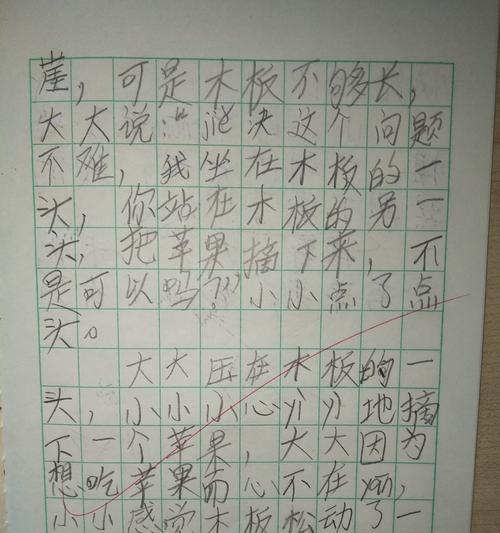 崖，可是木板不够长，
大大说："解决这个问题
不难，我坐在木板的一
头，你站在木板的另一
头，把苹果摘下来，不
是可以吗？"小小点了点
头。
大大压在木板的一
头，小小小心翼翼地摘
下一个苹果，大大因为
想吃苹果而心不在焉，
小小感觉木板松动了一